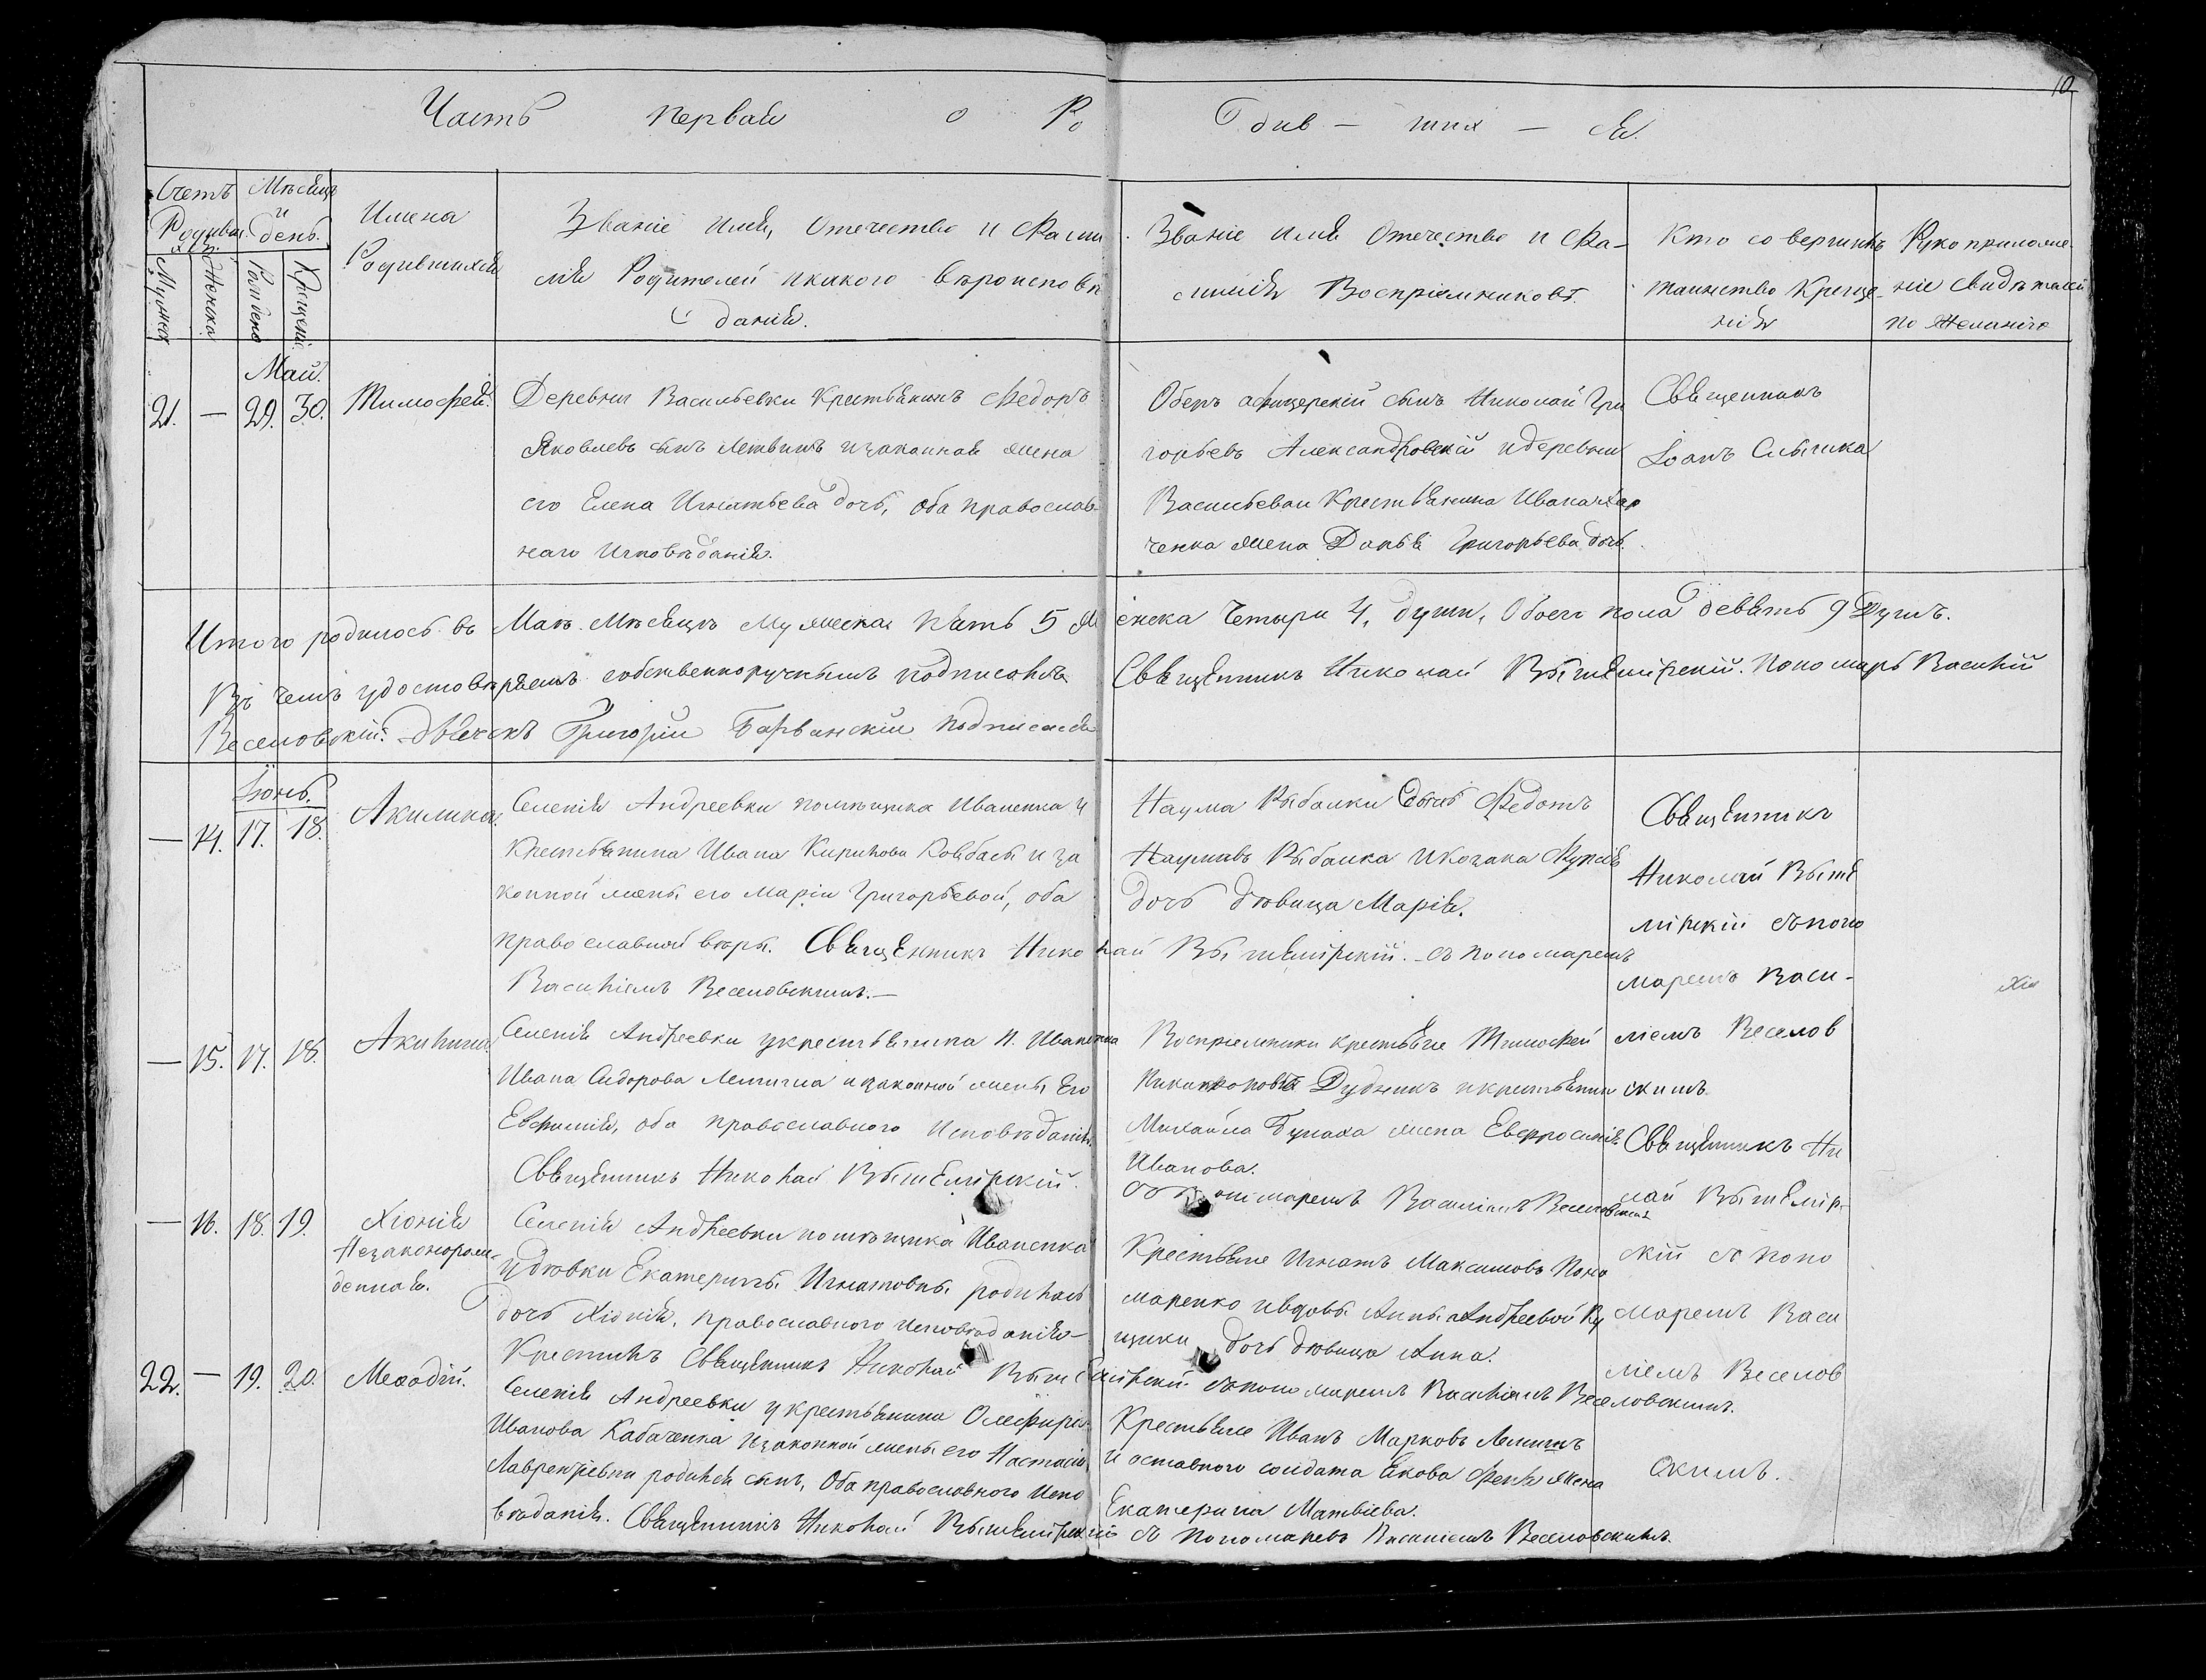 10
Часть первая о Родив – ших – ся.
Счетъ Родивш:
Мужеска
Женска
Мѣсяцъ и день.
Рожденія
Крещенія
Имена Родившихся
Званіе Имя, Отечество и Фами
лія Родителей и какого вѣроисповѣ
данія.
Званіе Имя Отечество и Фа-
милія Воспріемниковъ.
Кто совершилъ
таинство Креще-
нія
Рукоприложе-
ніе свидѣтелей
по желанію
Май.
21. — 29. 30. Тимофей.
Деревни Васильевки Крестьянинъ Федоръ
Яковлевъ сынъ Летвинъ и законная жена
его Елена Игнатьева дочь, оба православ-
наго Исповѣданія.
Оберъ офицерскій сынъ Николай Гри
горьевъ Александровскій и деревни
Васильевки Крестьянина Ивана Хар
ченка жена Дарья Григорьева дочь.
Священникъ
Іоанъ Слычка
Итого родилось въ Маѣ Мѣсяцѣ Мужеска пять 5 Женска Четыри 4, души, Обоего пола девять 9 Душъ.
Въ чемъ удостовѣряемъ собственноручнымъ подписомъ Священникъ Николай Вышемірскій. Пономарь Василій
Веселовскій. Дьячекъ Григорій Барвинскій подписался
Іюнь.
— 14. 17. 18. Акилина.
Селенія Андреевки помѣщика Иваненка у
Крестьянина Ивана Кирилова Ковбасы и за
конной жены его Маріи Григорьевой, оба
православной вѣры. Священникъ Николай Вышемірскій. съ пономаремъ
Василіемъ Веселовскимъ.—
Наума Рыбалки сынъ Федотъ
Наумовъ Рыбалка и козака
дочь дѣвица Марія.
Священникъ
Николай Выше
мірскій съ поно
маремъ Васи-
ліемъ Веселов
скимъ.
— 15. 17. 18. Акилина.
Селенія Андреевки у крестьянина П. Иваненка
Ивана Сидорова и законной жены Его
Евфиміи, оба православного Исповѣданія,
Священникъ Николай Вышемірскій.
Воспріемники крестьяне Тимофей
Никифоровъ Дудникъ и крестьянин
Михайла Бунаха жена Евфросинія
Иванова.
съ пономаремъ Василіемъ Веселовскимъ
Священникъ Ни
лай Вышемір-
скій съ поно
маремъ Васи
ліемъ Веселов
скимъ.
— 16. 18. 19. Хіонія
Незаконорож-
денная.
Селенія Андреевки помѣщика Иваненка
у дѣвки Екатерины Игнатовны родилась
дочь Хіонія, православного исповѣданія—
Крестилъ Священникъ Николай Вышемірскій съ пономаремъ Василіемъ Веселовскимъ.
Крестьяне Игнатъ Максимовъ Поно
маренко и вдовы Анны Андреевой Ку
щики, дочь дѣвица Анна.
22. — 19. 20. Меѳодій.
Селенія Андреевки у крестьянина Олефира
Иванова Кабаченка и законной жены его Настасіи
Лаврентіевны родился сынъ, Оба православного Испо
вѣданія. Священникъ Николай Вышемірскій съ Пономаремъ Василіемъ Веселовскимъ.
Крестьяне Иванъ Марковъ
и оставного солдата Якова жена
Екатерина Матвіева.